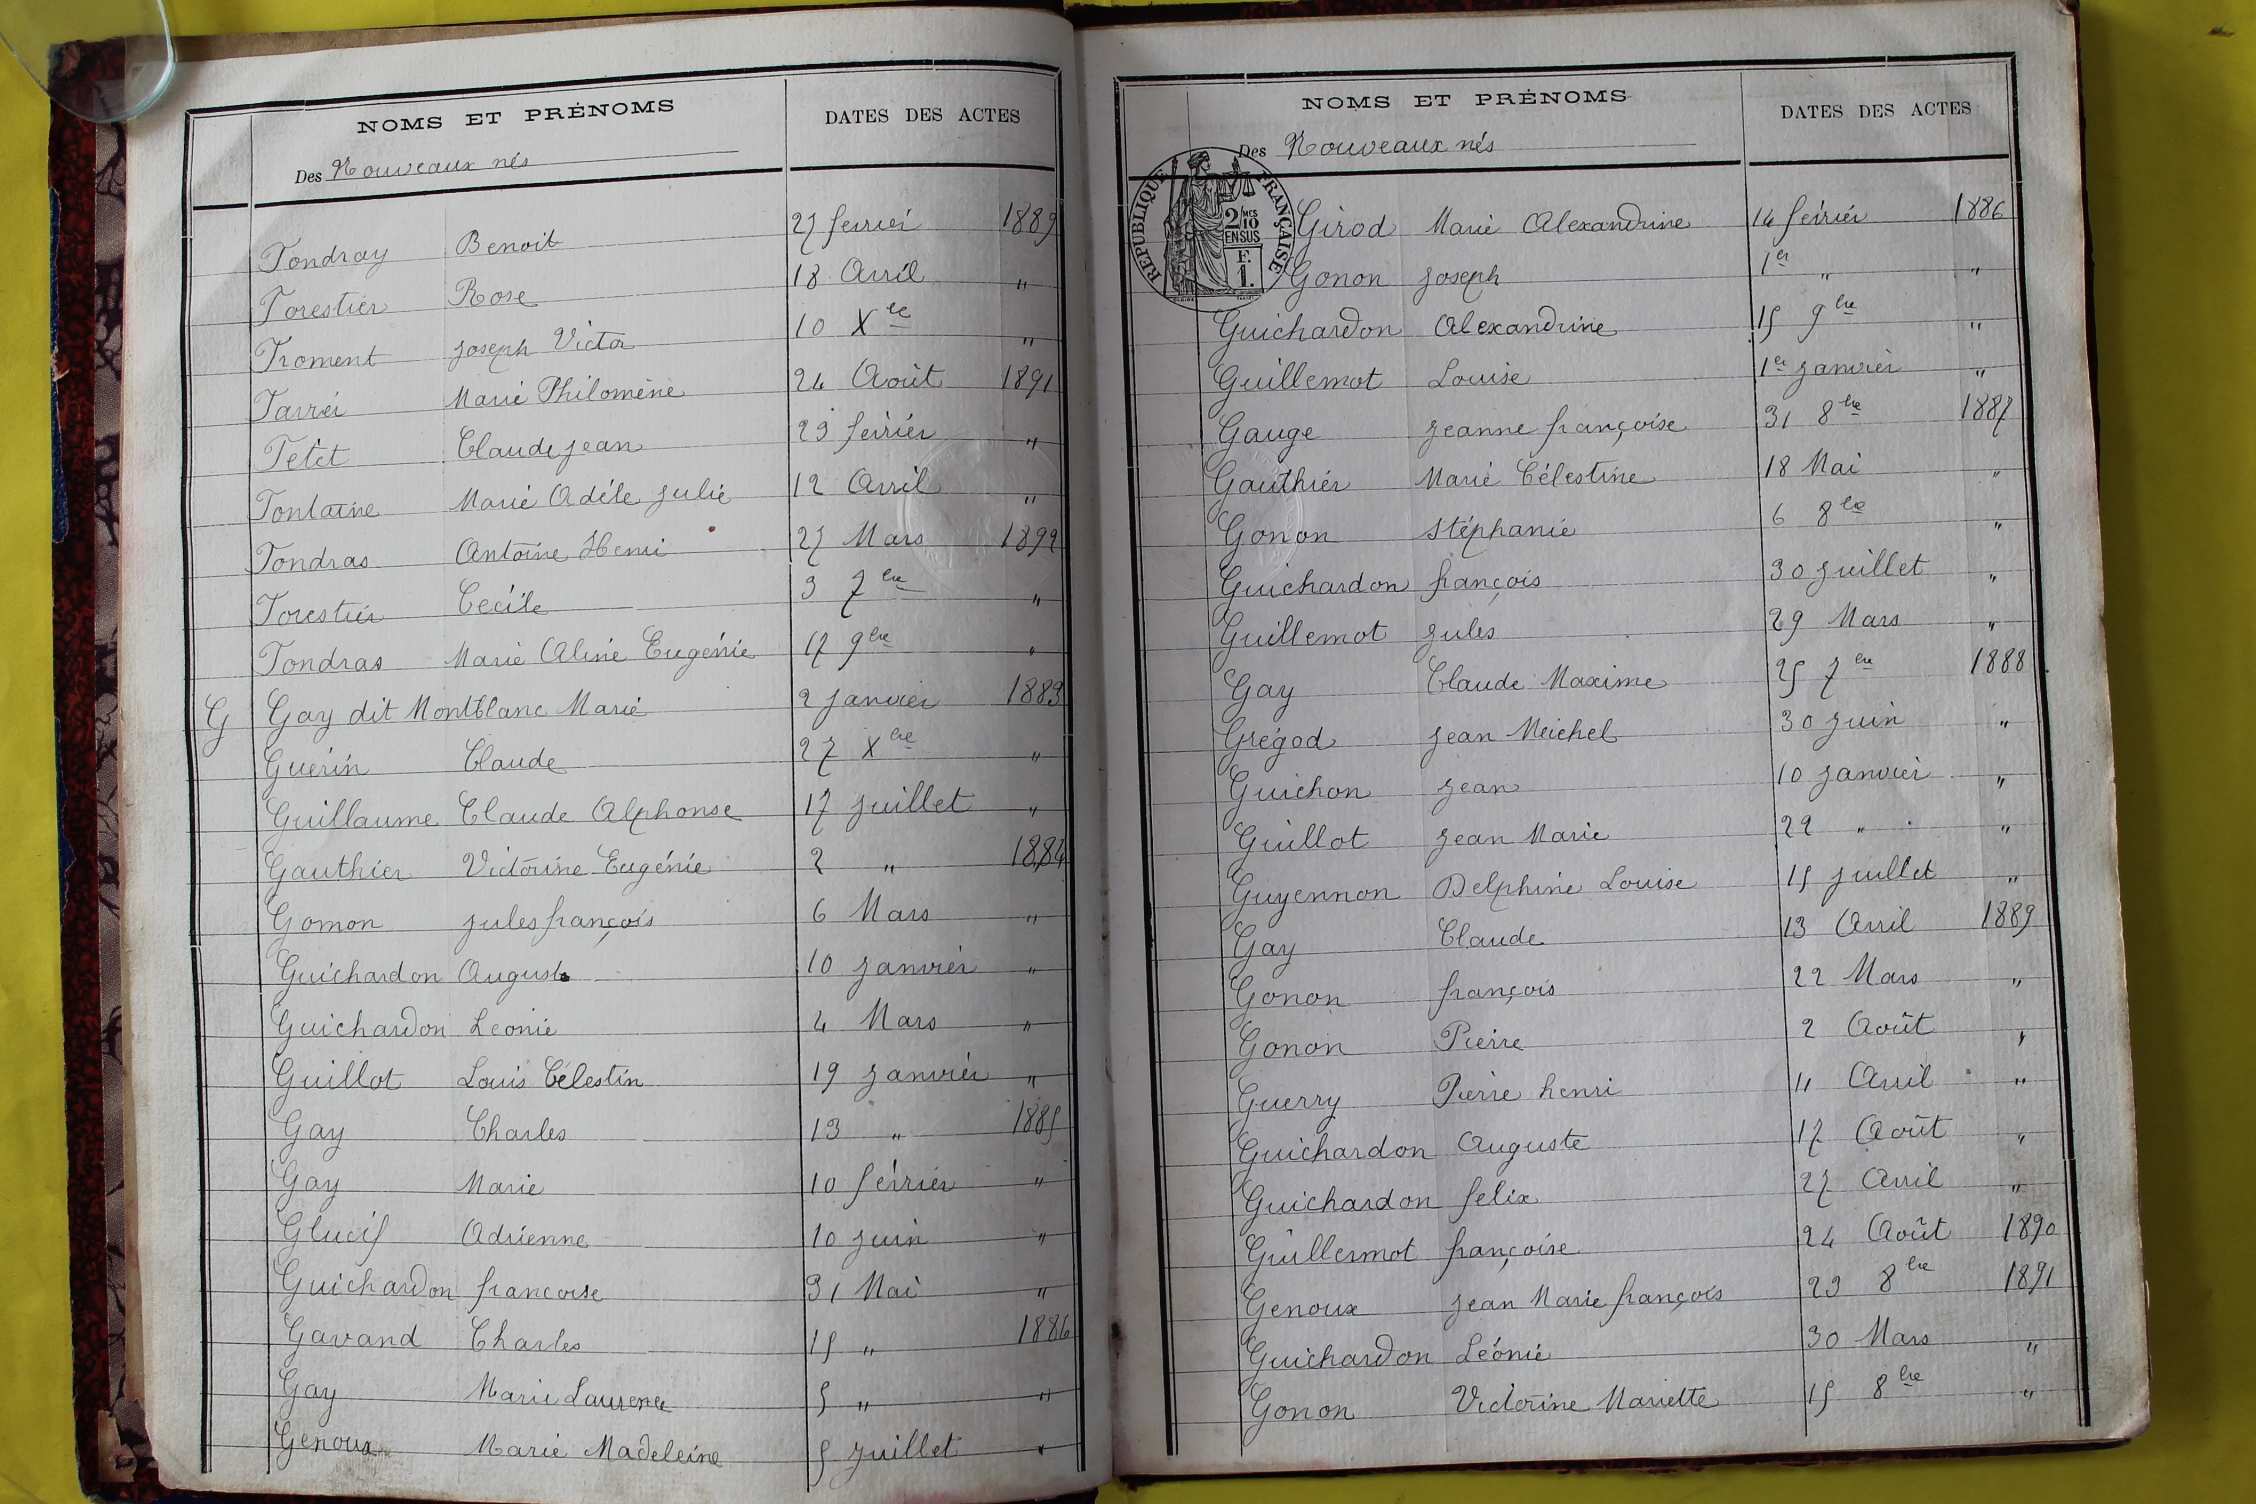 NOMS ET PRÉNOMS DATES DES ACTES
Des Nouveaux nés
Fondray Benoit 27 fevrier 1889
Forestier Rose 18 Avril "
Froment Joseph Victor 10 Xbre "
Farrié Marie Philomène 24 Août 1891
Fétet Claude Jean 23 février "
Fontaine Marie Adèle Julie 12 Avril "
Fondras Antoine Henri 27 Mars 1892
Forestier Cécile 3 7bre "
Fondras Marie Aline Eugénie 17 9bre "
G Gay dit Montblanc Marie 2 Janvier 1883
Guérin Claude 27 Xbre "
Guillaume Claude Alphonse 17 Juillet "
Gauthier Victorine Eugénie 2 " 1884
Gomon Jules françois 6 Mars "
Guichardon Auguste 10 Janvier "
Guichardon Leonie 4 Mars "
Guillot Louis Célestin 19 Janvier "
Gay Charles 13 " 1885
Gay Marie 10 février "
Adrienne 10 Juin "
Guichardon francoise 31 Mai "
Gavand Charles 15 " 1886
Gay Marie Laurence 5 " "
Genoux Marie Madeleine 5 Juillet "
NOMS ET PRÉNOMS DATES DES ACTES
Des Nouveaux nés
RÉPUBLIQUE FRANÇAISE
2/10 MES
EN SUS
F.
1.
Girod Marie Alexandrine 14 février 1886
Gonon Joseph 1er " "
Guichardon Alexandrine 15 9bre "
Guillemot Louise 1er Janvier "
Gauge Jeanne françoise 31 8bre 1887
Gauthier Marie Célestine 18 Mai "
Gonon Stéphanie 6 8bre "
Guichardon françois 30 Juillet "
Guillemot Jules 29 Mars "
Gay Claude Maxime 25 7bre 1888
Grégod Jean Meichel 30 Juin "
Guichon Jean 10 Janvier "
Guillot Jean Marie 22 " "
Guyennon Delphine Louise 15 Juillet "
Gay Claude 13 Avril 1889
Gonon françois 22 Mars "
Gonon Pierre 2 Août "
Guerry Pierre henri 11 Avril "
Guichardon Auguste 17 Août "
Guichardon felix 27 Avril "
Guillermot françoise 24 Août 1890
Genoux Jean Marie françois 23 8bre 1891
Guichardon Léonie 30 Mars "
Gonon Victorine Mariette 15 8bre "